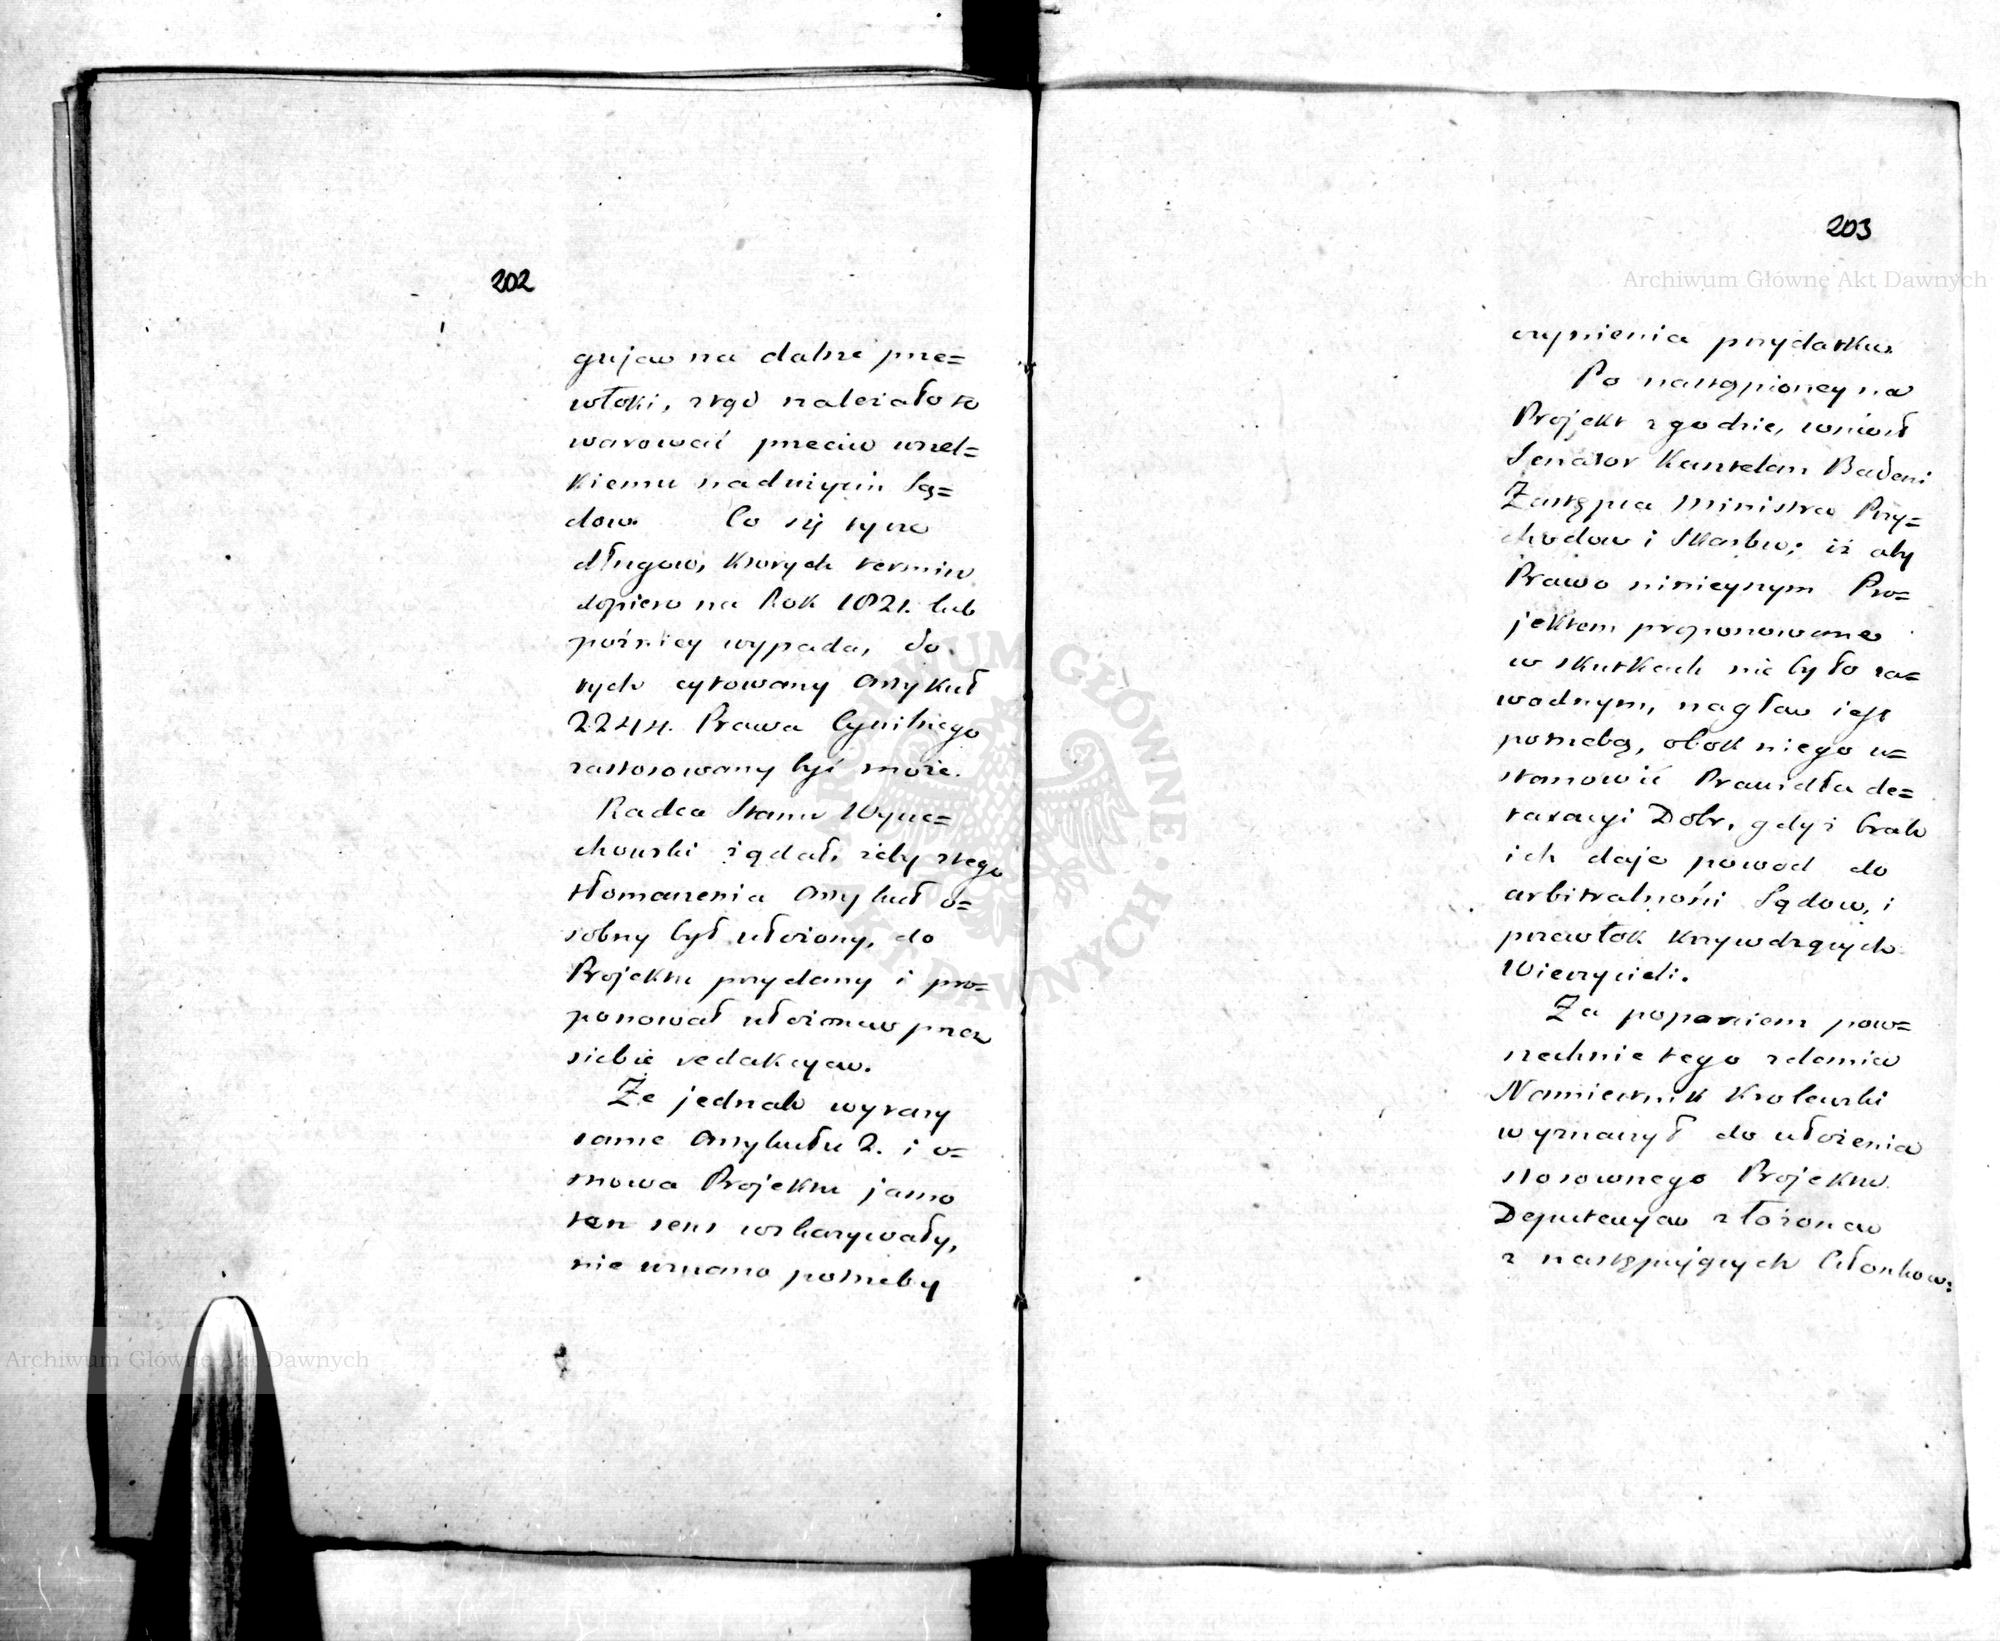 202
gujaw na dalsze prze=
włoki, ztąd należało to
warować przeciw wszel=
kiemu nadużyciu Są=
dow. Co się tycze
długow, ktorych termin
dopiero na Rok 1821. lub
poźniey wypada, do
tych cytowany Artykuł
2244. Prawa Cywilnego
zastosowany być może.
Radca Stanu Wycze=
chowski żądał, żeby z tego
tłomaczenia Artykuł o=
sobny był ułożony, do
Projektu przydany i pro=
ponował ułożonaw przez
siebie redakcyaw.
Że jednak wyrazy
same Artykułu 2. i o=
snowa Projektu jasno
ten sens wskazywały,
nie uznano potrzeby
203
Archiwum Główne Akt Dawnych
czynienia przydatku.
Po nastąpioney na
Projekt zgodzie, wniosł
Senator Kasztelan Badeni
Zastępca Ministra Przy=
chodow i Skarbu; iż aby
Prawo ninieyszym Pro=
jektem proponowane
w skutkach nie było za=
wodnym, nagław jest
potrzebą, obok niego u=
stanowić Prawidła de=
taxacyi Dobr, gdyż brak
ich daje powod do
arbitralności Sądow, i
przewłok krzywdzących
Wierzycieli.
Za poparciem pow=
szechnie tego zdania
Namiestnik Krolewski
wyznaczył do ułożenia
stosownego Projektu
Deputacyaw złożonaw
z następujących Członkow:
Archiwum Główne Akt Dawnych
ARCHIWUM GŁÓWNE AKT DAWNYCH